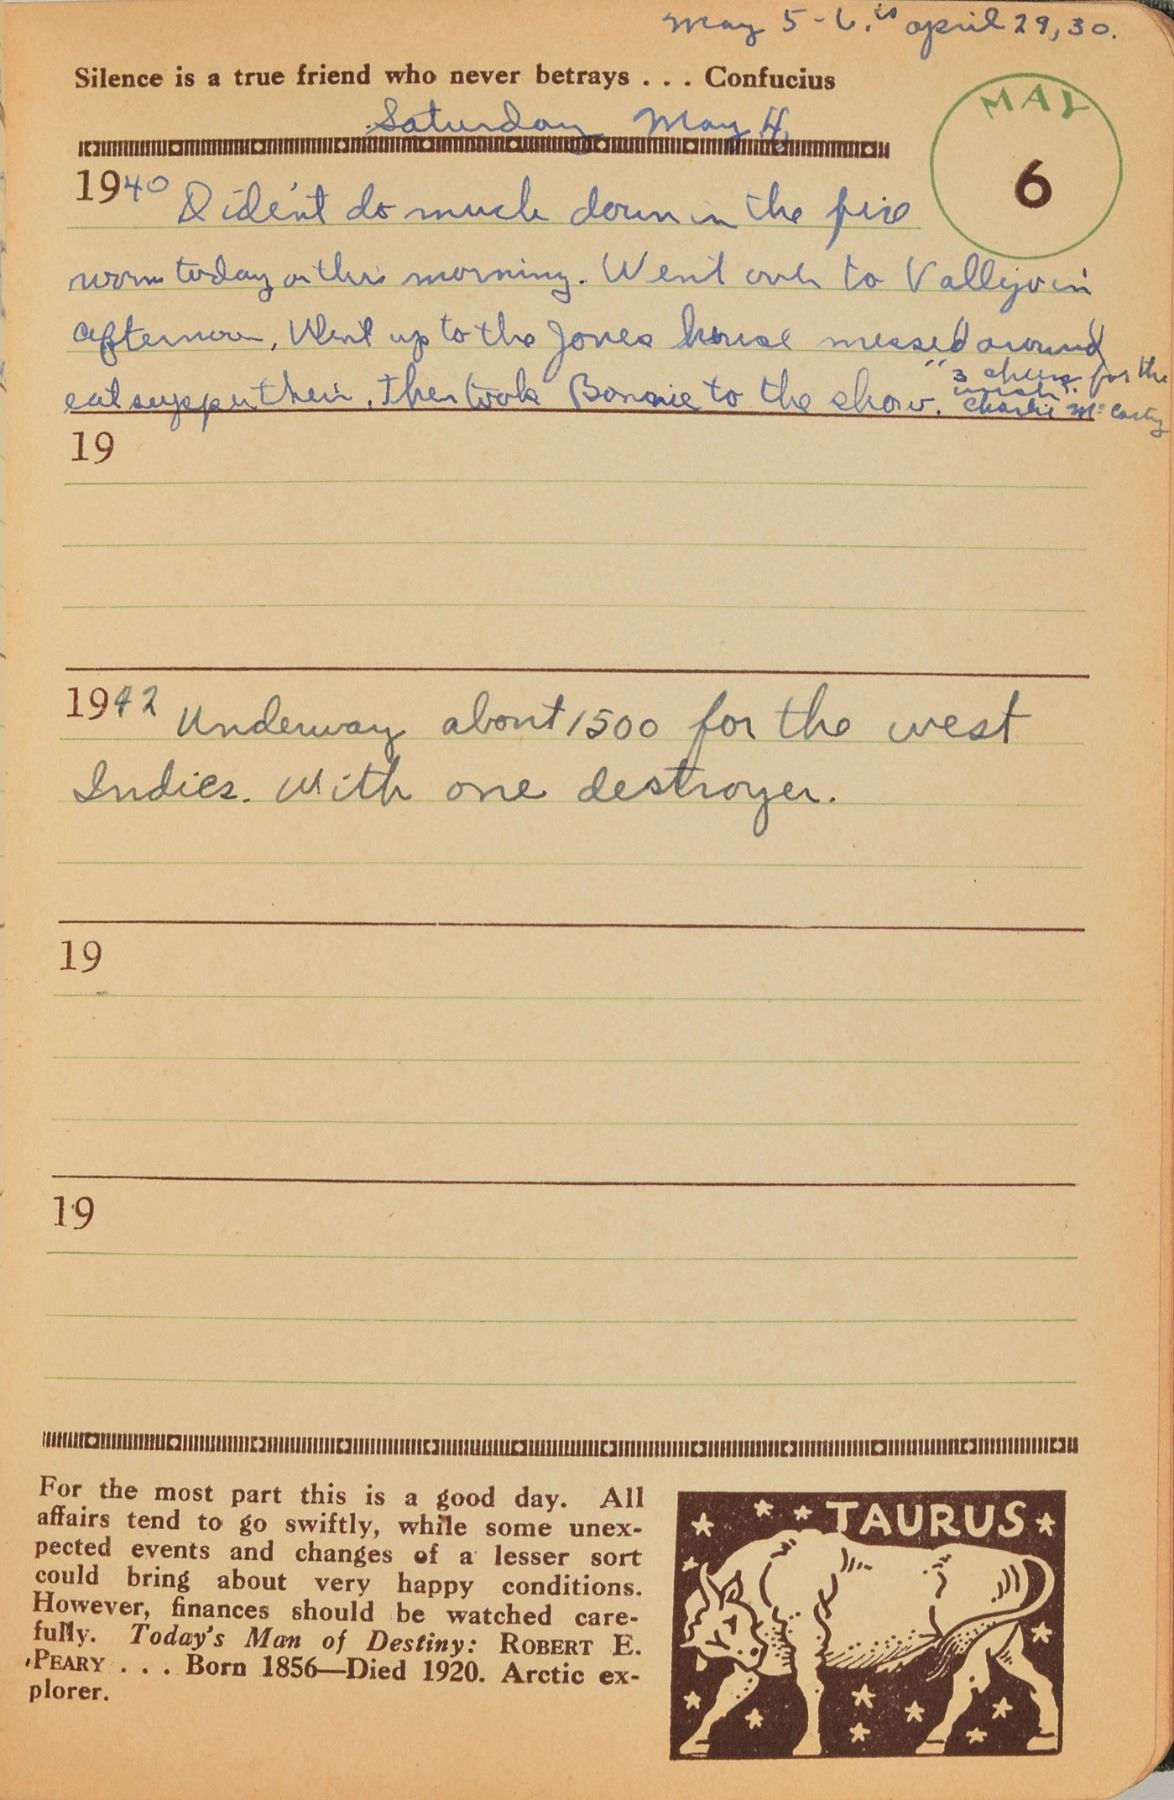 May 5-6. is april 29, 30.
Silence is a true friend who never betrays . . . Confucius
Saturday May 4,
MAY
6
1940 Dident do much down in the fire
room today or this morning. Went over to Vallejo in
afternoon, Went up to the Jones house messed around
eat supper their, then took Bonnie to the show. "3 cheers for the
Irish". Charlie Mc Carty
19
1942 Underway about 1500 for the west
Indies. With one destroyer.
19
19
For the most part this is a good day. All
affairs tend to go swiftly, while some unex-
pected events and changes of a lesser sort
could bring about very happy conditions.
However, finances should be watched care-
fully. Today's Man of Destiny: ROBERT E.
PEARY . . . Born 1856—Died 1920. Arctic ex-
plorer.
TAURUS